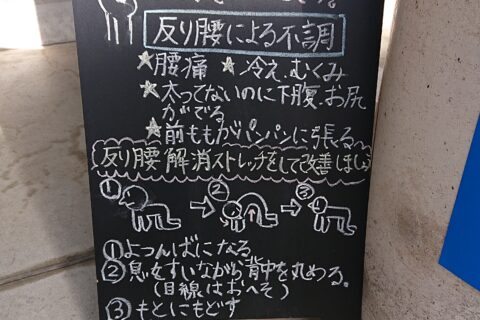 反り腰による不調
☆腰痛 ☆冷え、むくみ
☆太ってないのに下腹、お尻
がでる
☆前ももがパンパンに張る
反り腰解消ストレッチをして改善しましょう
① ② ③
①よつんばになる
②息をすいながら背中を丸める。
(目線はおへそ)
③もとにもどす